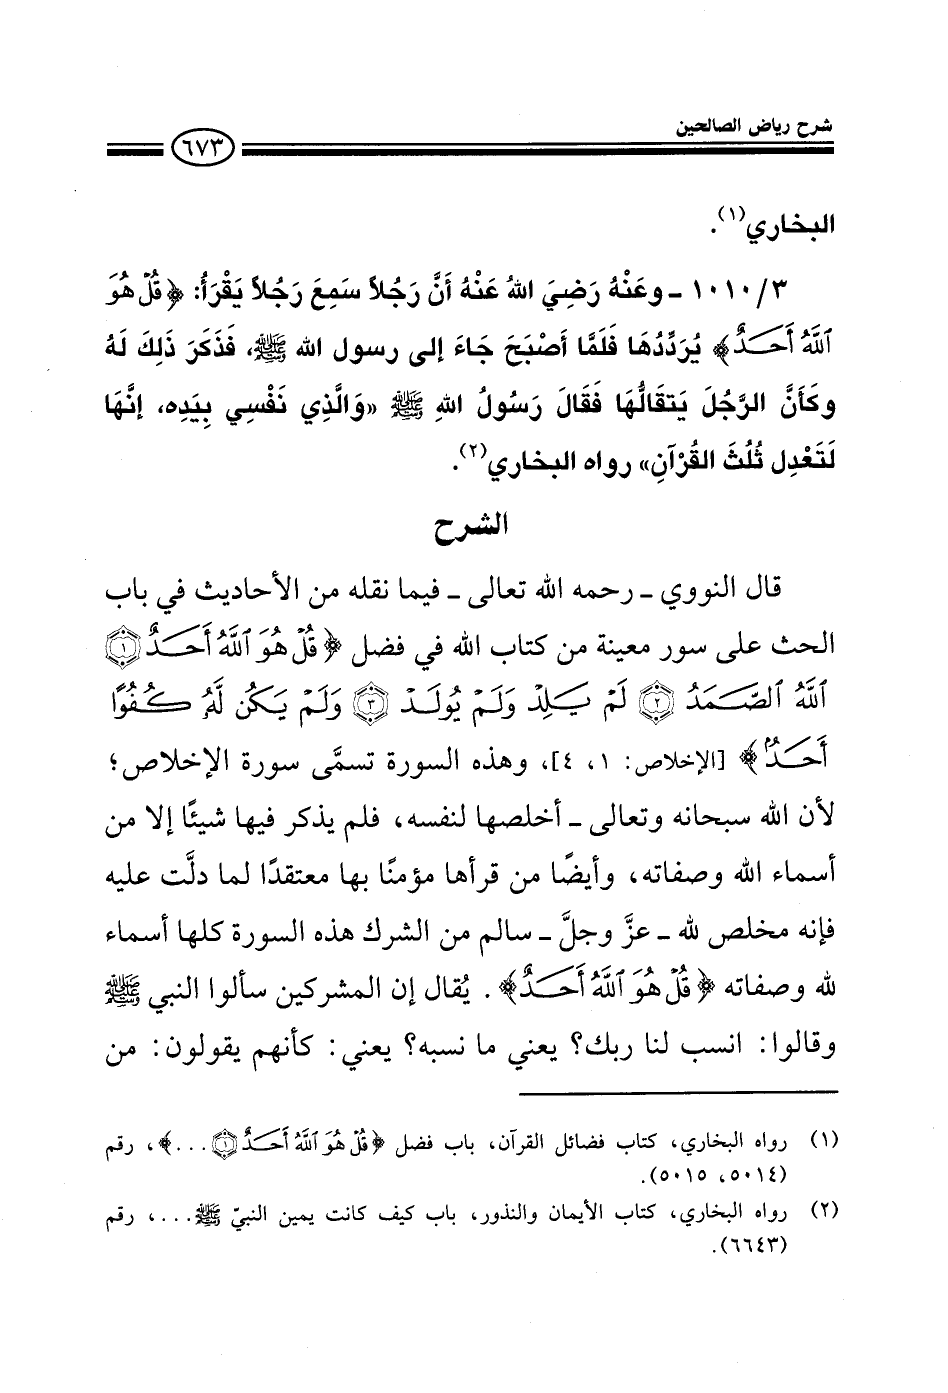 شرح رياض الصالحين
٦٧٣
البخاري(١).
١٠١٠/٣ ـ وعَنْهُ رَضِيَ اللهُ عَنْهُ أَنَّ رَجُلاً سَمِعَ رَجُلاً يَقْرَأُ: ﴿قُلْ هُوَ
ٱللَّهُ أَحَدٌ﴾ يُرَدِّدُهَا فَلَمَّا أَصْبَحَ جَاءَ إلى رسول الله ﷺ، فَذَكَرَ ذَلِكَ لَهُ
وكَأَنَّ الرَّجُلَ يَتَقَالُّهَا فَقَالَ رَسُولُ اللهِ ﷺ «وَالَّذِي نَفْسِي بِيَدِه، إنَّهَا
لَتَعْدِل ثُلُثَ القُرْآنِ» رواه البخاري(٢).
الشرح
قال النووي ـ رحمه الله تعالى ـ فيما نقله من الأحاديث في باب
الحث على سور معينة من كتاب الله في فضل ﴿قُلْ هُوَ ٱللَّهُ أَحَدٌ ١
ٱللَّهُ ٱلصَّمَدُ ٢ لَمْ يَلِدْ وَلَمْ يُولَدْ ٣ وَلَمْ يَكُن لَّهُ كُفُوًا
أَحَدٌ﴾ [الإخلاص: ١، ٤]، وهذه السورة تسمَّى سورة الإخلاص؛
لأن الله سبحانه وتعالى ـ أخلصها لنفسه، فلم يذكر فيها شيئًا إلا من
أسماء الله وصفاته، وأيضًا من قرأها مؤمنًا بها معتقدًا لما دلَّت عليه
فإنه مخلص لله ـ عزَّ وجلَّ ـ سالم من الشرك هذه السورة كلها أسماء
لله وصفاته ﴿قُلْ هُوَ ٱللَّهُ أَحَدٌ﴾. يُقال إن المشركين سألوا النبي ﷺ
وقالوا: انسب لنا ربك؟ يعني ما نسبه؟ يعني: كأنهم يقولون: من
(١) رواه البخاري، كتاب فضائل القرآن، باب فضل ﴿قُلْ هُوَ ٱللَّهُ أَحَدٌ ١...﴾، رقم
(٥٠١٤، ٥٠١٥).
(٢) رواه البخاري، كتاب الأيمان والنذور، باب كيف كانت يمين النبيّ ﷺ...، رقم
(٦٦٤٣).